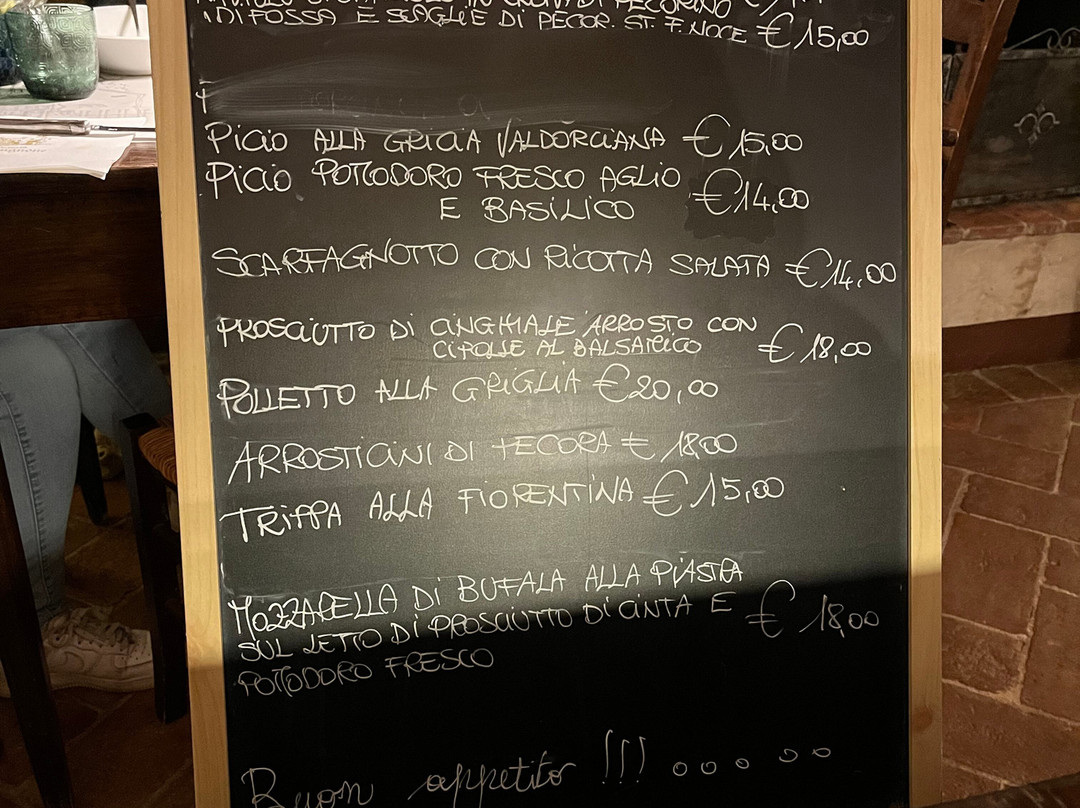 DI FOSSA E SCAGLIE DI PECOR. ST. F. NOCE € 15,00
PICIO ALLA GRICIA VALDORCIANA € 15,00
PICIO POMODORO FRESCO AGLIO
E BASILICO € 14,00
SCARFAGNOTTO CON RICOTTA SALATA € 14,00
PROSCIUTTO DI CINGHIALE ARROSTO CON
CIPOLLE AL BALSAMICO € 18,00
POLLETTO ALLA GRIGLIA € 20,00
ARROSTICINI DI PECORA € 18,00
TRIPPA ALLA FIORENTINA € 15,00
MOZZARELLA DI BUFALA ALLA PIASTRA
SUL LETTO DI PROSCIUTTO DI CINTA E € 18,00
POMODORO FRESCO
Buon appetito !!! o o o o o